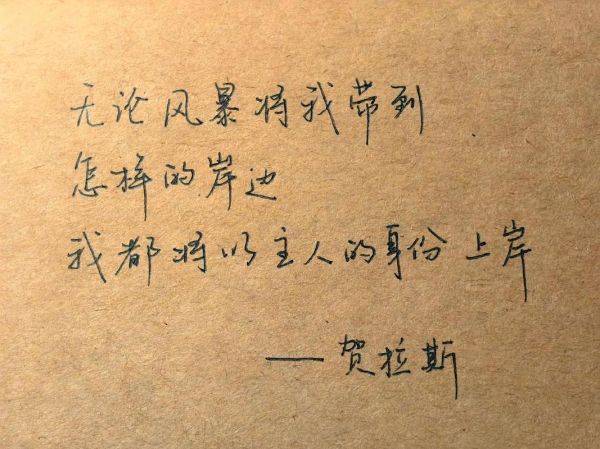 无论风暴将我带到
怎样的岸边
我都将以主人的身份上岸
——贺拉斯